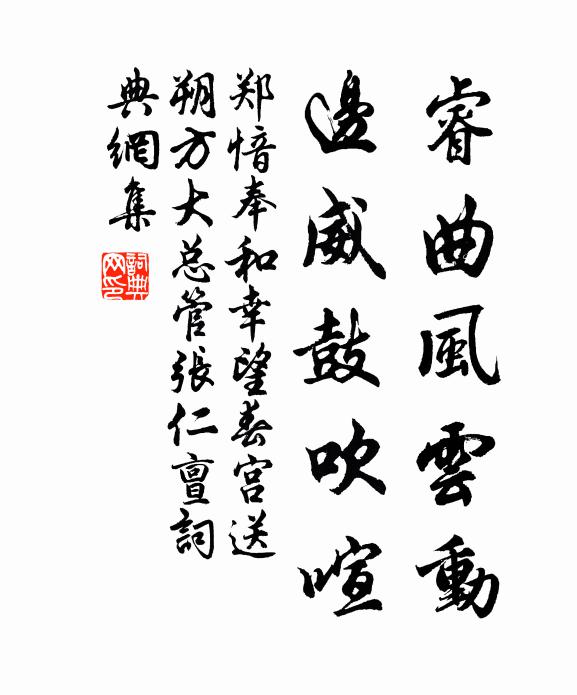 睿曲風雲動
邊威鼓吹喧
郑愔奉和幸望春宫送
朔方大总管張仁亶詞
典網集
詞典网印